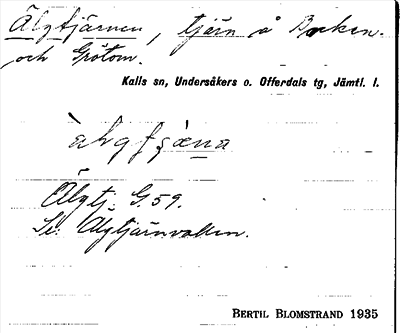 Älgtjärnen, tjärn å Backen.
och Grötom.
Kalls sn, Undersåkers o. Offerdals tg, Jämtl. l.
Älgtj. G.59.
Se: Älgtjärnvallen.
BERTIL BLOMSTRAND 1935